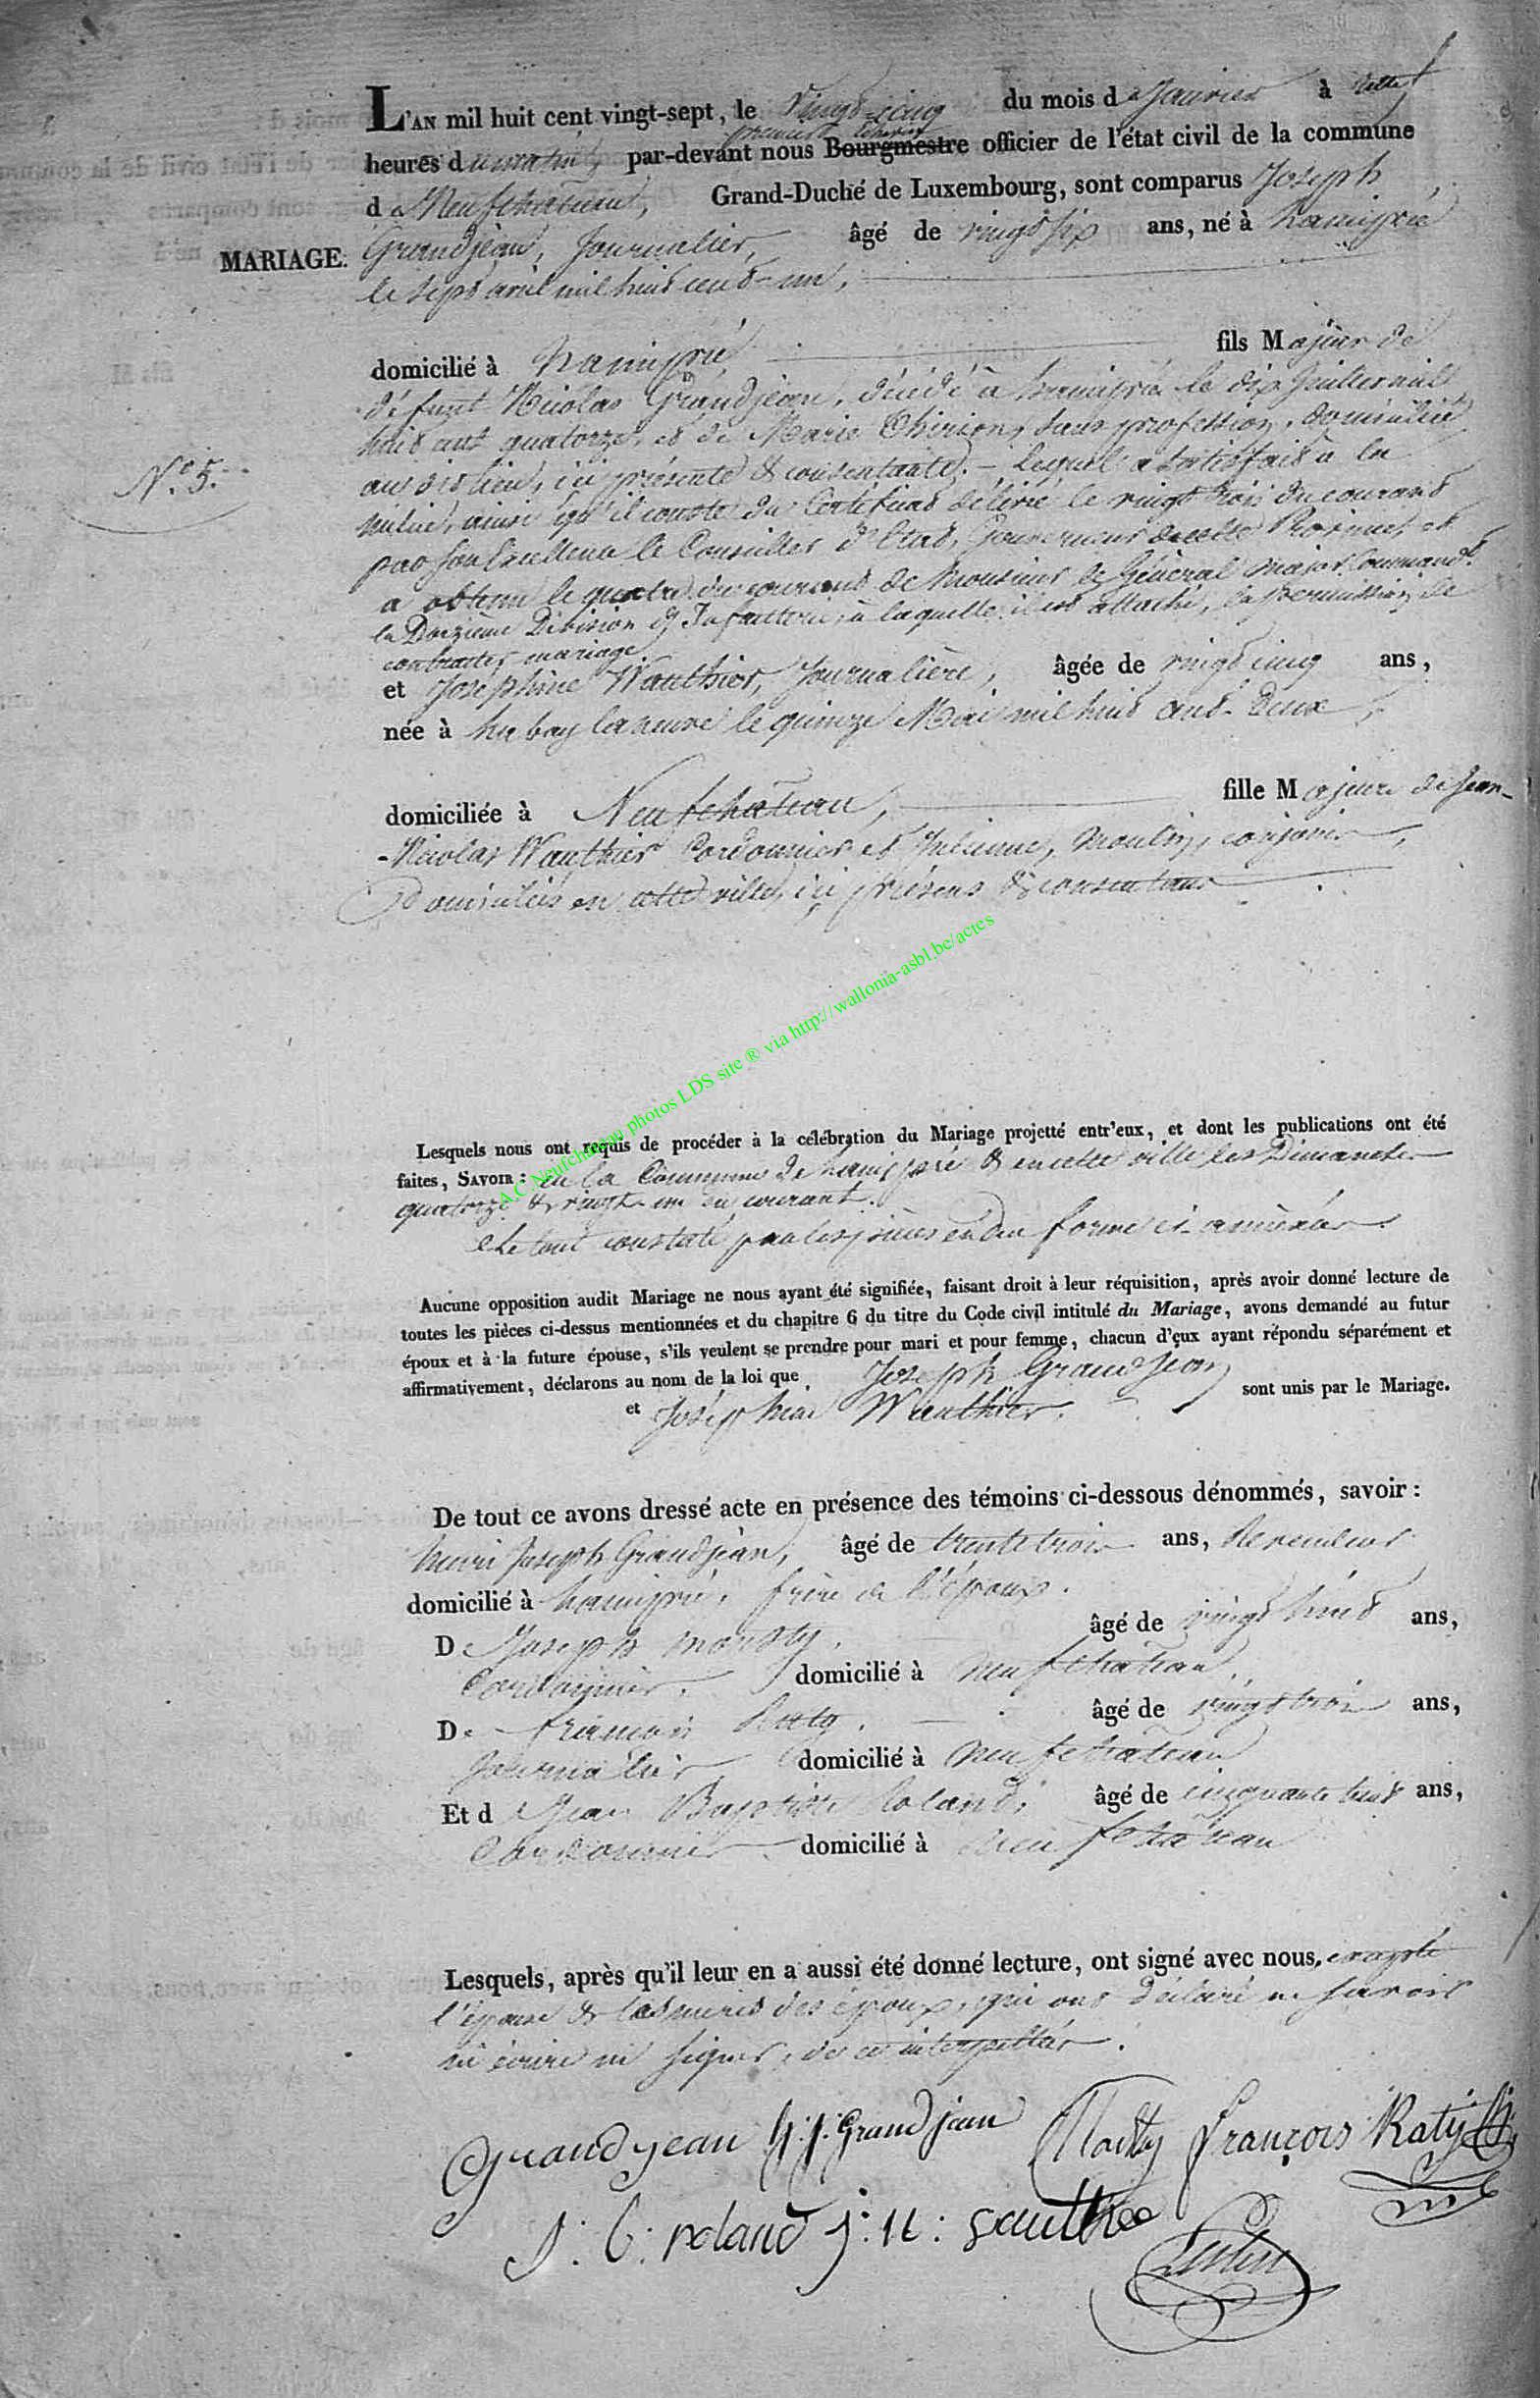 L'AN mil huit cent vingt-sept, le vingt-cinq du mois de Janvier à
premier Echevin
heures du matin, par-devant nous Bourgmestre officier de l'état civil de la commune
de Neufchateau, Grand-Duché de Luxembourg, sont comparus Joseph
MARIAGE. Grandjean, Journalier, âgé de vingt six ans, né à hamipré
le sept avril mil huit cent-un,
domicilié à hamipré fils Majeur de
défunt Nicolas Grandjean, décédé à hamipré le dix huit avril
huit cent quatorze, et de Marie Thirion, sans profession, domiciliée
N.º 5.
au dit lieu, ici présente & consentante. - Lequel a satisfait à la
milice, ainsi qu'il conste du Certificat délivré le vingt trois du courant
par son Excellence le Conseiller d'Etat, Gouverneur de cette Province, et
a obtenu le quatre du courant de Monsieur le Général Major Command.t
la Division d'Infanterie, à laquelle il est attaché, la permission de
contracter mariage
et Joséphine Wauthier, Journalière, âgée de vingt cinq ans,
née à habay la neuve le quinze Mai mil huit cent-deux,
domiciliée à Neufchateau, fille Majeure de Jean-
-Nicolas Wauthier Cordonnier et Julienne Moulin, conjoints,
Domiciliés en cette ville, ici présens & consentans
A.C Neufchateau photos LDS site ® via http://wallonia-asbl.be/actes
Lesquels nous ont requis de procéder à la célébration du Mariage projetté entr'eux, et dont les publications ont été
faites, SAVOIR : en la Commune de hamipré & en cette ville les Dimanches
quatorze & vingt-un du courant.
Le tout constaté par les pièces en due forme ci-annexées.
Aucune opposition audit Mariage ne nous ayant été signifiée, faisant droit à leur réquisition, après avoir donné lecture de
toutes les pièces ci-dessus mentionnées et du chapitre 6 du titre du Code civil intitulé du Mariage, avons demandé au futur
époux et à la future épouse, s'ils veulent se prendre pour mari et pour femme, chacun d'eux ayant répondu séparément et
affirmativement, déclarons au nom de la loi que Joseph Grandjean
et Joséphine Wauthier. sont unis par le Mariage.
De tout ce avons dressé acte en présence des témoins ci-dessous dénommés, savoir :
henri Joseph Grandjean, âgé de trente trois ans,
domicilié à hamipré, frère de l'époux.
De Joseph Mousty, âgé de vingt huit ans,
Cordonnier, domicilié à Neufchateau.
De François Raty, âgé de vingt trois ans,
Journalier, domicilié à Neufchateau
Et de Jean Baptiste Roland, âgé de cinquante huit ans,
Cordonnier domicilié à Neufchateau
Lesquels, après qu'il leur en a aussi été donné lecture, ont signé avec nous, excepté
l'épouse & les meres des époux, qui ont déclaré ne savoir
ni écrire ni signer, de ce interpellés.
Grandjean h.j. Grandjean Mousty François Raty
J: b: roland j: n: gauthie